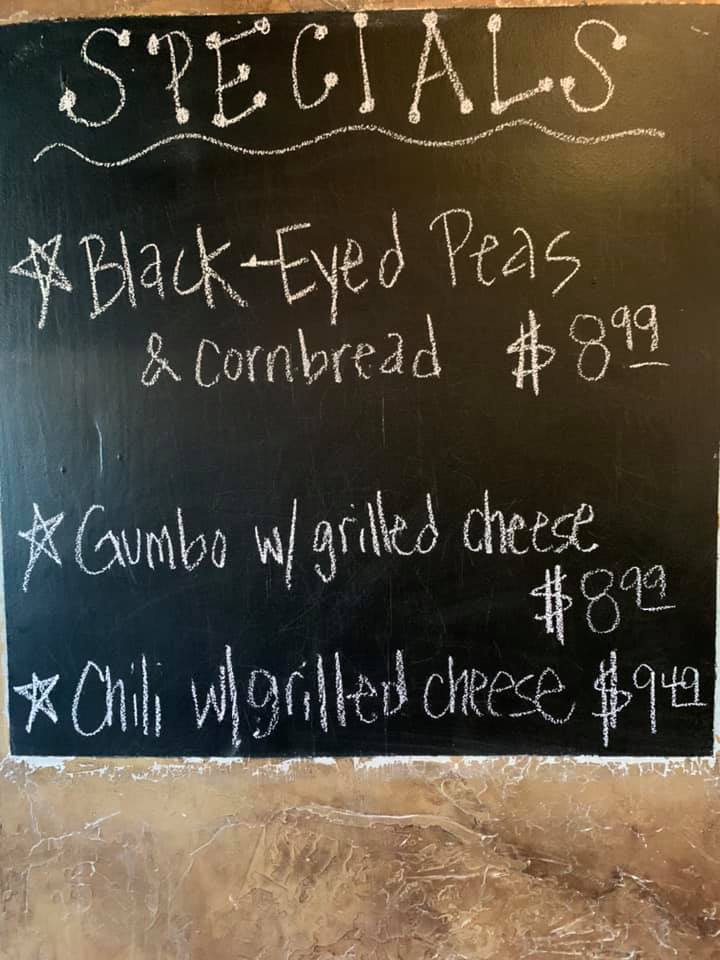 SPECIALS
☆ Black-Eyed Peas
& cornbread $8.99
☆ Gumbo w/ grilled cheese
$8.99
☆ Chili w/grilled cheese $9.49